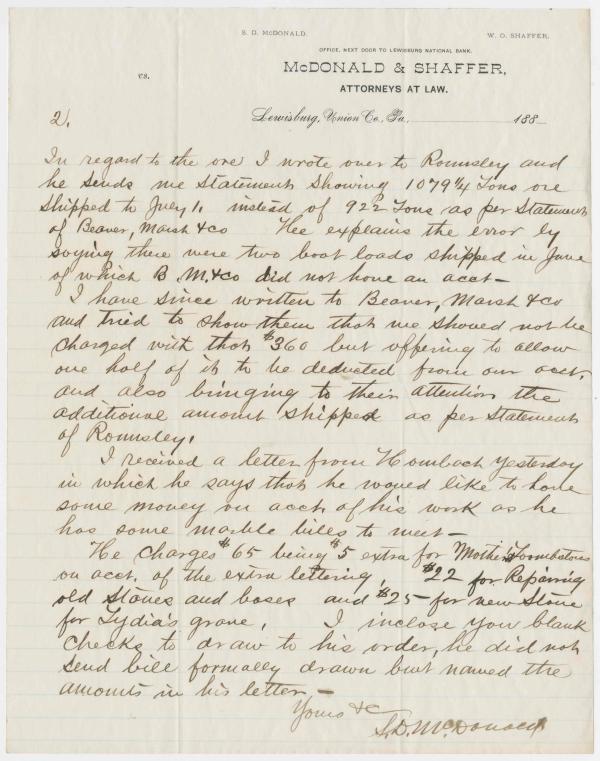 S. D. McDONALD. W. O. SHAFFER.
OFFICE, NEXT DOOR TO LEWISBURG NATIONAL BANK.
vs. McDONALD & SHAFFER,
ATTORNEYS AT LAW.
2. Lewisburg, Union Co., Pa., 188
In regard to the ore I wrote over to Romsley and
he sends me Statement showing 1079 1/4 Tons ore
shipped to July 1. instead of 922 Tons as per Statement
of Beaver, Marsh & Co Hee explains the error by
saying there were two boat loads shipped in June
of which B. M. & Co did not have an acct—
I have since written to Beaver, Marsh & Co
and tried to show them that we should not be
charged with that $360 but offering to allow
one half of it to be deducted from our acct.
and also bringing to their attention the
additional amount shipped as per Statement
of Romsley.
I received a letter from Hombach yesterday
in which he says that he would like to have
some money on acct. of his work as he
has some marble bills to meet—
He charges $65 being $5 extra for Mothers Toombstone
on acct. of the extra lettering, $22 for Repairing
old Stones and bases and $25— for new Stone
for Lydia's grave. I inclose you blank
checks to draw to his order, he did not
send bill formally drawn but named the
amounts in his letter—
Yours &c
S. D. McDonald